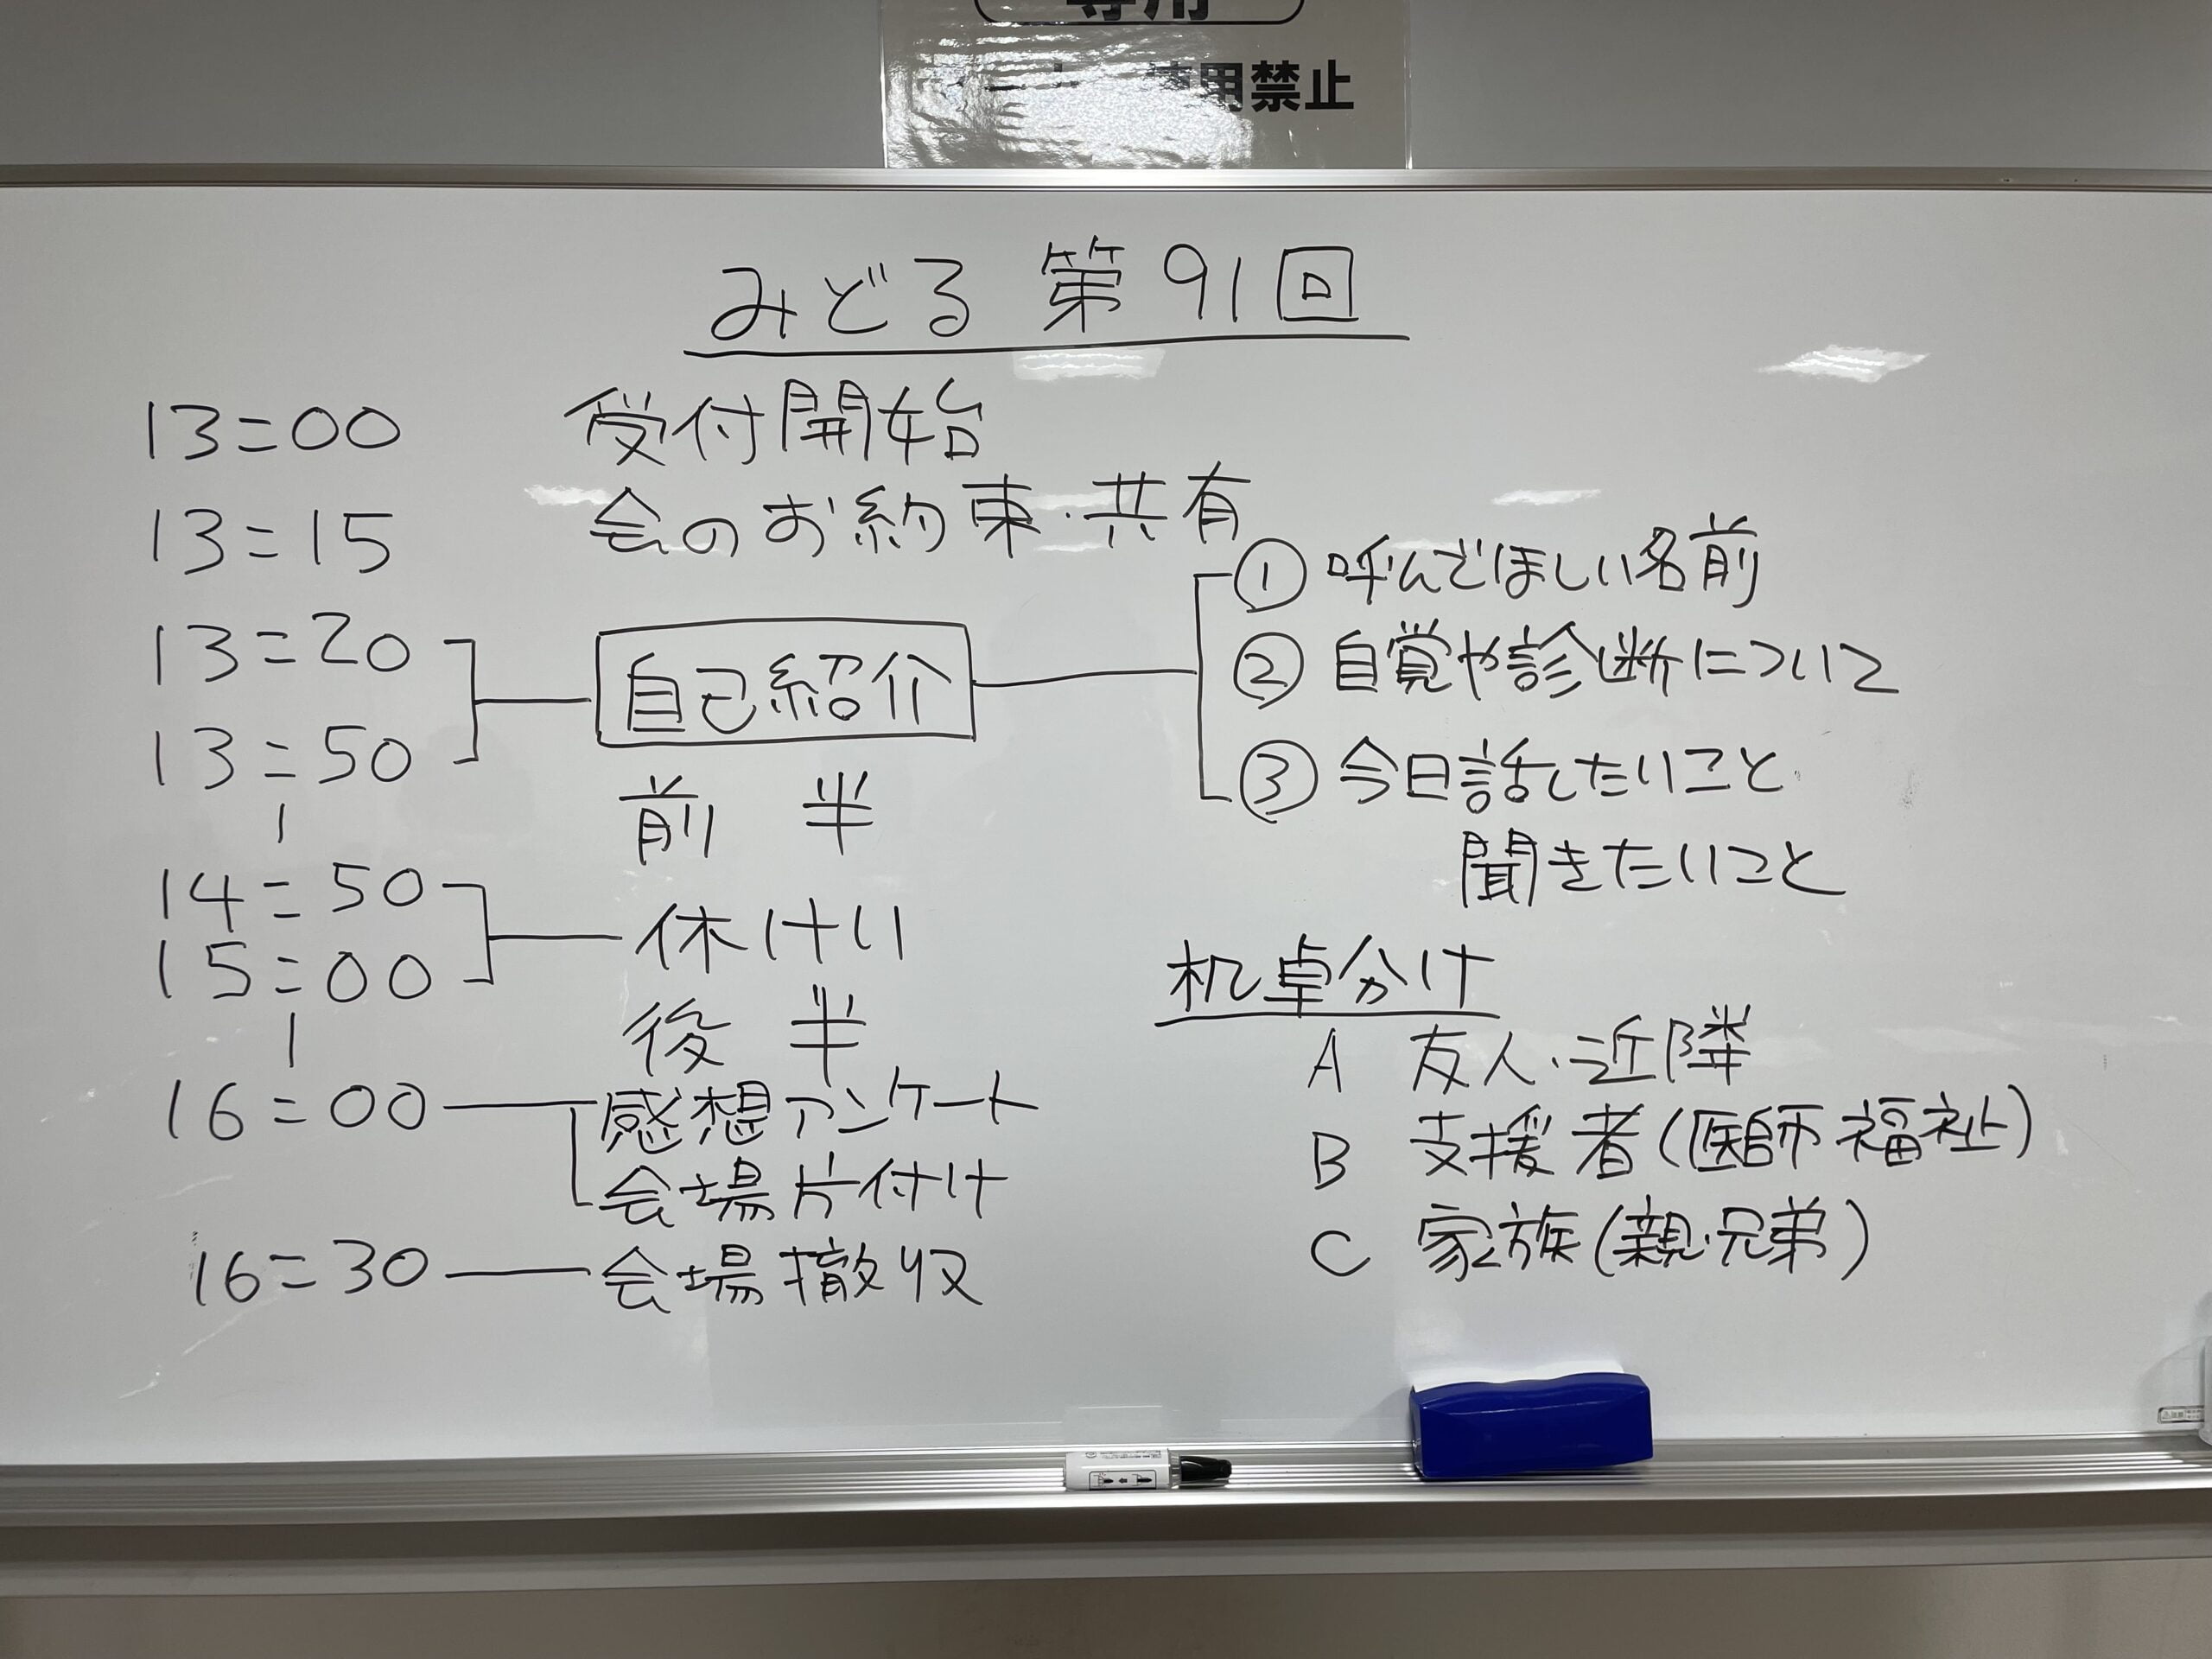 専用
使用禁止
みどる 第91回
13=00 受付開始
13=15 会のお約束・共有
13=20
13=50
自己紹介
① 呼んでほしい名前
② 自覚や診断について
③ 今日話したいこと
聞きたいこと
前半
14=50
15=00
休けい
後半
16=00 感想アンケート
会場片付け
16=30 会場撤収
机卓分け
A 友人・近隣
B 支援者(医師 福祉)
C 家族(親・兄弟)